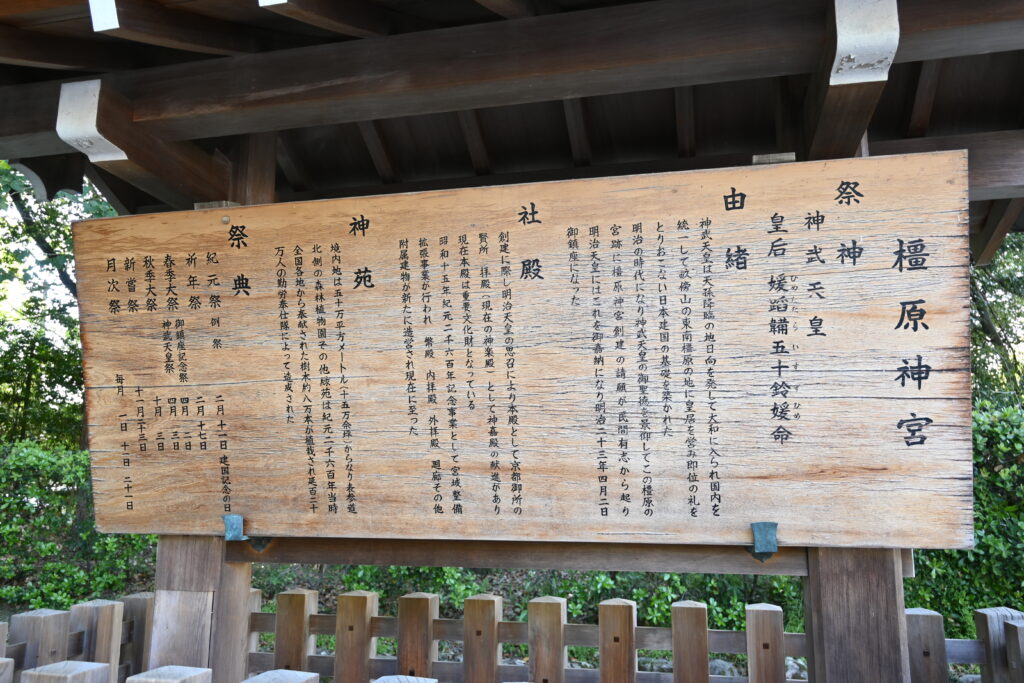 橿原神宮
祭神
神武天皇
皇后 媛蹈鞴五十鈴媛命
ひめたたらいすずひめ
由緒
神武天皇は天孫降臨の地日向を発して大和に入られ国内を
統一して畝傍山の東南橿原の地に皇居を営み即位の礼を
とりおこない日本建国の基礎を築かれた
明治の時代になり神武天皇の御聖徳を景仰してこの橿原の
宮跡に橿原神宮創建の請願が民間有志から起り
明治天皇にはこれを御嘉納になり明治二十三年四月二日
御鎮座になった
社殿
創建に際し明治天皇の思召により本殿として京都御所の
賢所 拝殿(現在の神楽殿)として神嘉殿の献進があり
現在本殿は重要文化財となっている
昭和十五年紀元二千六百年記念事業として宮域整備
拡張事業が行われ 幣殿 内拝殿 外拝殿 廻廊その他
附属建物が新たに造営され現在に至った
神苑
境内地は五十万平方メートル(十五万余坪)からなり表参道
北側の森林植物園その他綜苑は紀元二千六百年当時
全国各地から奉献された樹木約八万本が植栽され延百二十
万人の勤労奉仕隊によって造成された
祭典
紀元祭 例祭 二月十一日 建国記念の日
祈年祭 二月十七日
春季大祭 御鎮座記念祭 四月二日
神武天皇祭 四月三日
秋季大祭 十月三日
新嘗祭 十一月二十三日
月次祭 毎月 一日 十一日 二十一日